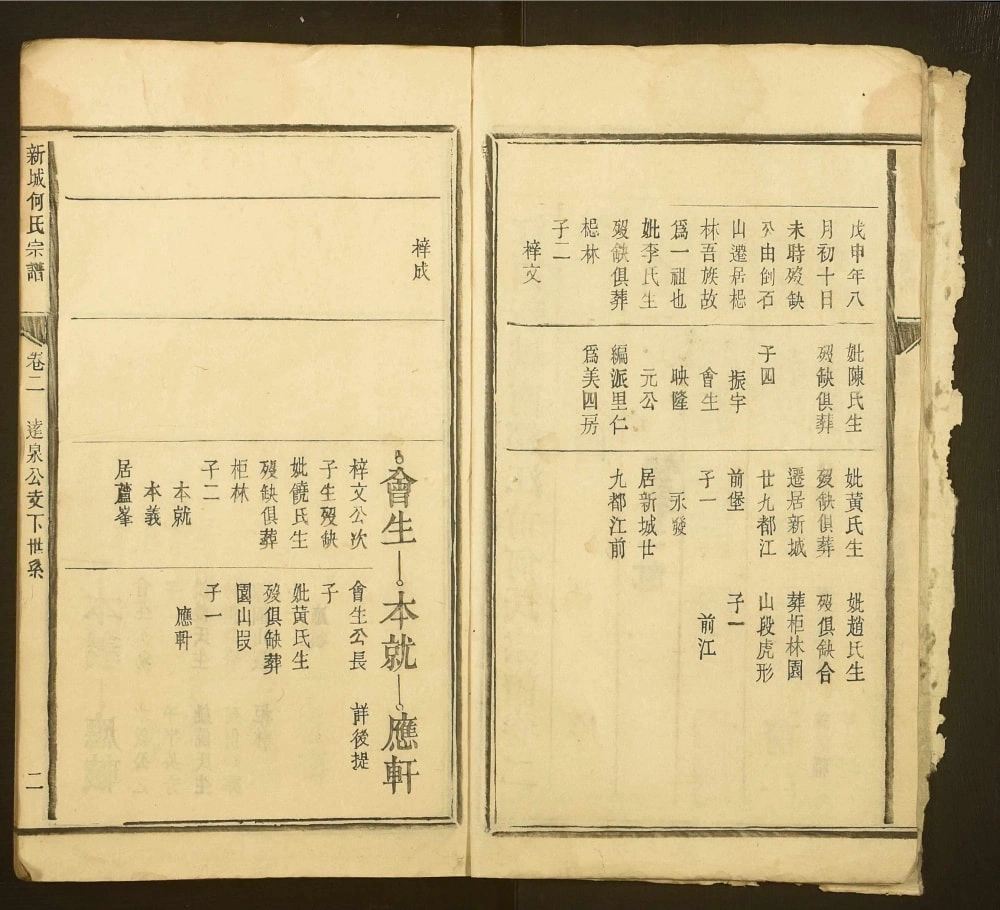 戊申年八
月初十日
未時歿缺
公由劊石
山遷居梔
林吾族故
爲一祖也
妣李氏生
歿缺俱葬
梔林
子二
梓文
妣陳氏生
歿缺俱葬
子四
振宇
會生
映隆
元公
編派里仁
爲美四房
妣黃氏生
歿缺俱葬
遷居新城
廿九都江
前堡
子一
永發
居新城世
九都江前
妣趙氏生
歿俱缺合
葬柜林園
山段虎形
子一
前江
梓成
會生
本就
應軒
梓文公次
子生歿缺
妣饒氏生
歿缺俱葬
柜林
子二
本就
本義
居蘆峯
會生公長
子
妣黃氏生
歿俱缺葬
園山段
子一
應軒
詳後提
新城何氏宗譜
卷二
達泉公支下世系
二